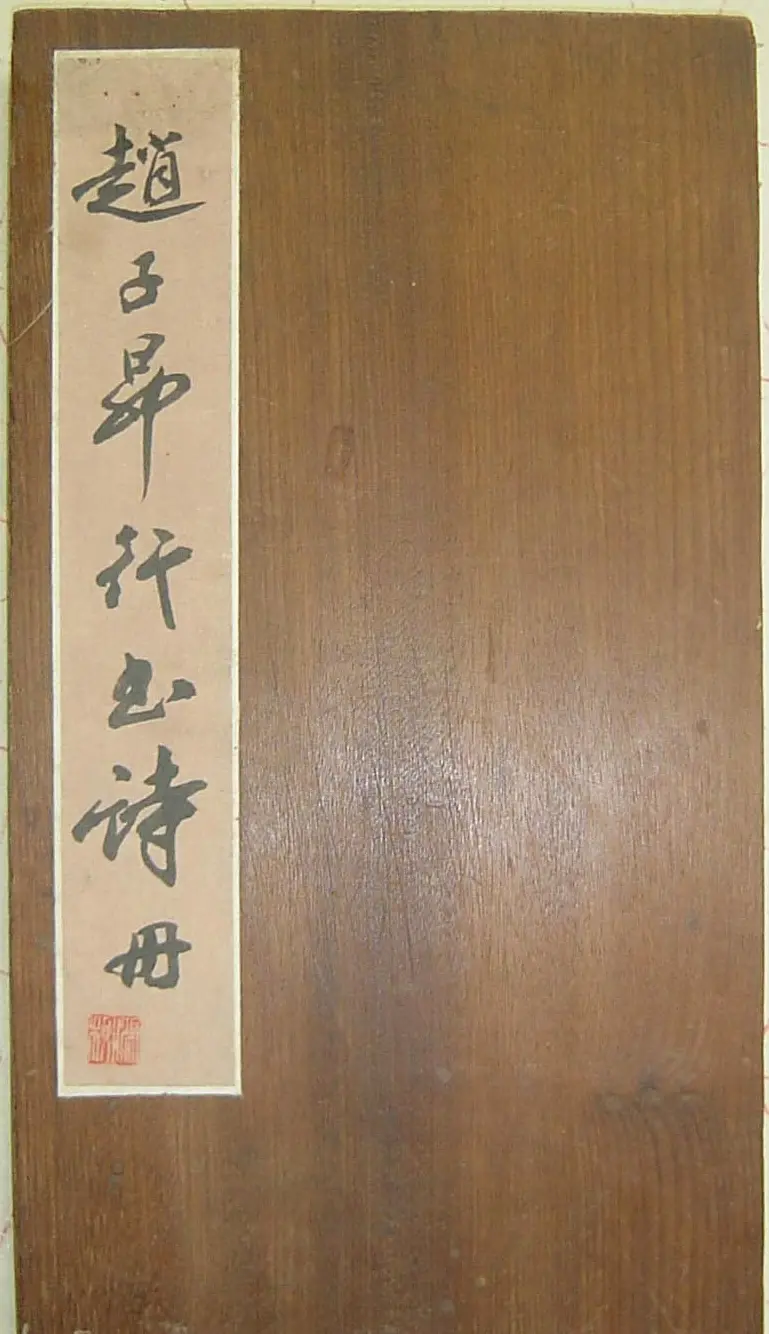 趙子昂行书詩冊